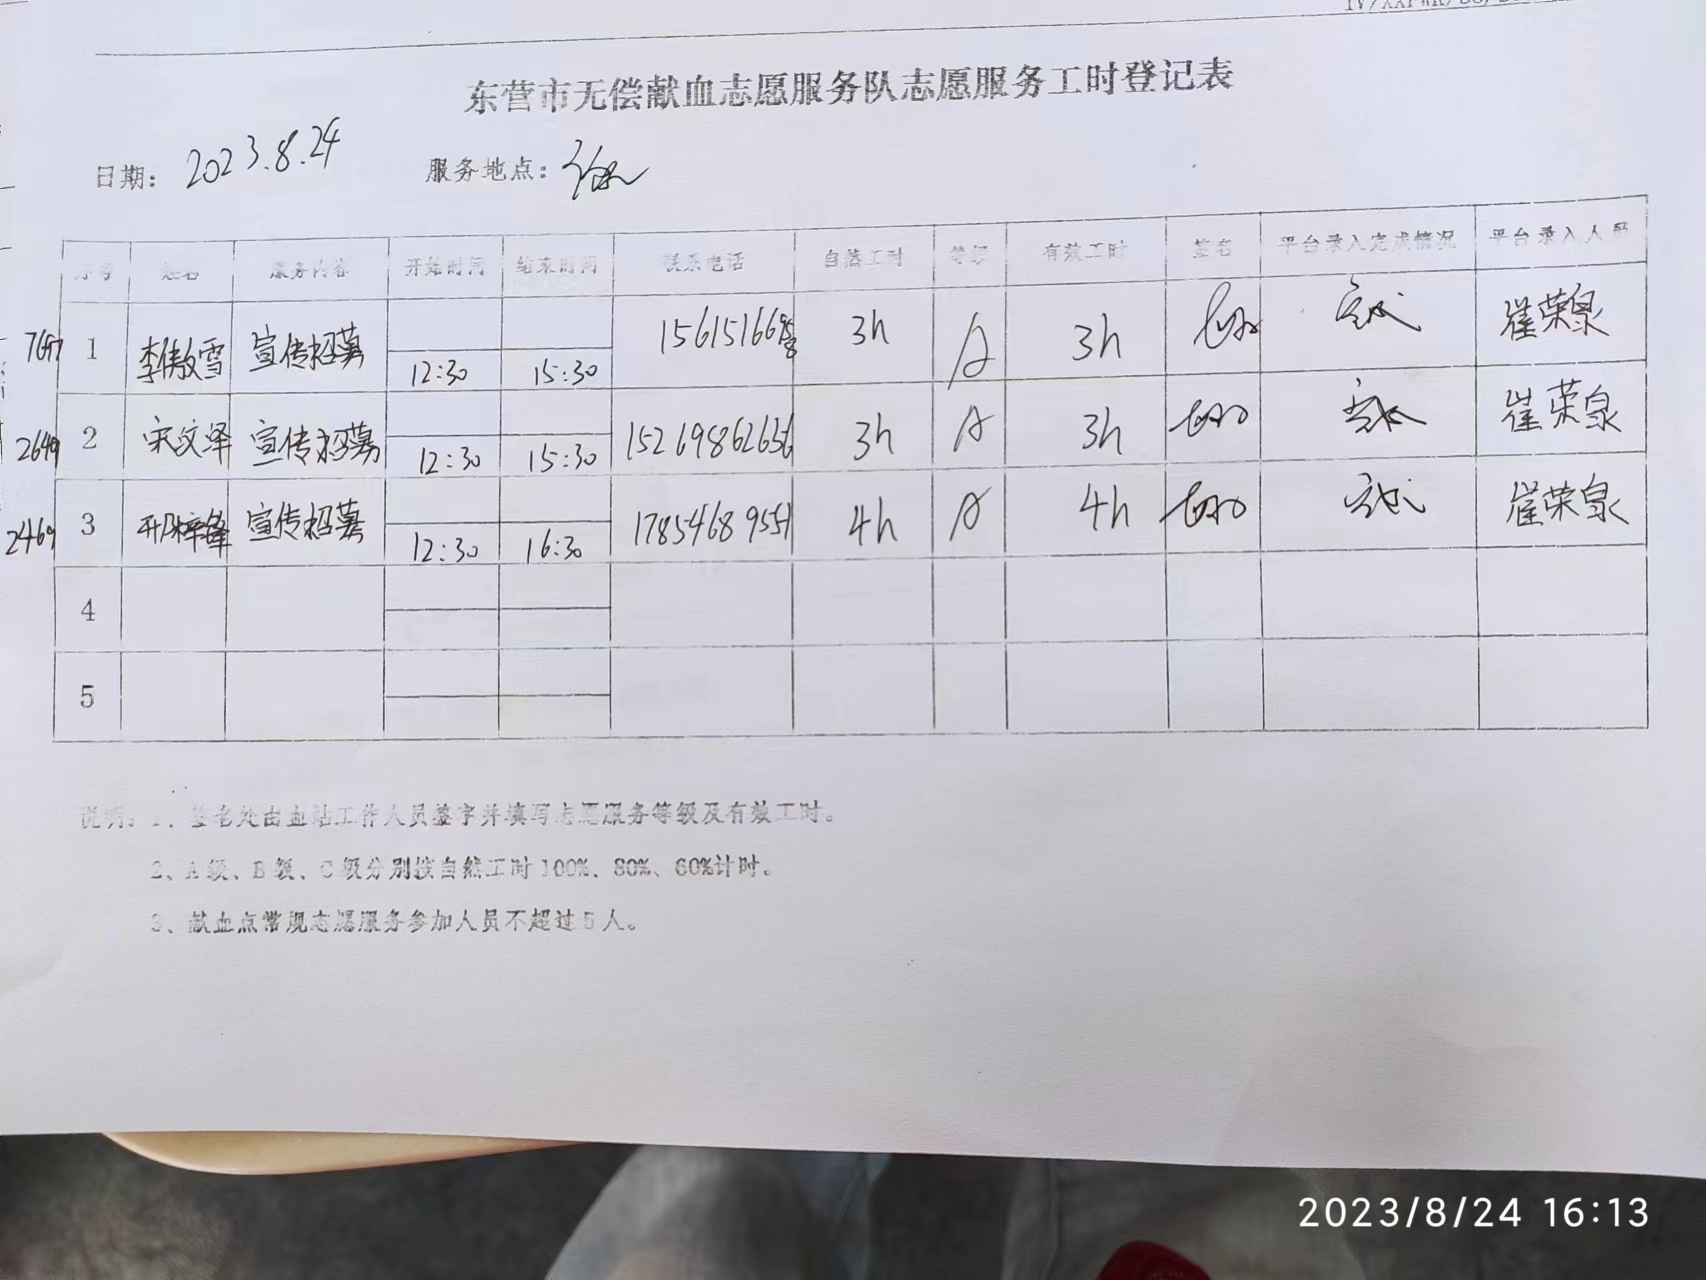 东营市无偿献血志愿服务队志愿服务工时登记表
日期: 2023.8.24 服务地点:
序号 姓名 服务内容 开始时间 结束时间 联系电话 自然工时 等级 有效工时 签名 平台录入完成情况 平台录入人员
7697 1 李傲雪 宣传招募 12:30 15:30 3h A 3h 完成 崔荣泉
2649 2 宋文泽 宣传招募 12:30 15:30 15269862656 3h A 3h 完成 崔荣泉
2469 3 宣传招募 12:30 16:30 17854689551 4h A 4h 完成 崔荣泉
4
5
说明:1、签名处由血站工作人员签字并填写志愿服务等级及有效工时。
2、A级、B级、C级分别按自然工时100%、80%、60%计时。
3、献血点常规志愿服务参加人员不超过5人。
2023/8/24 16:13